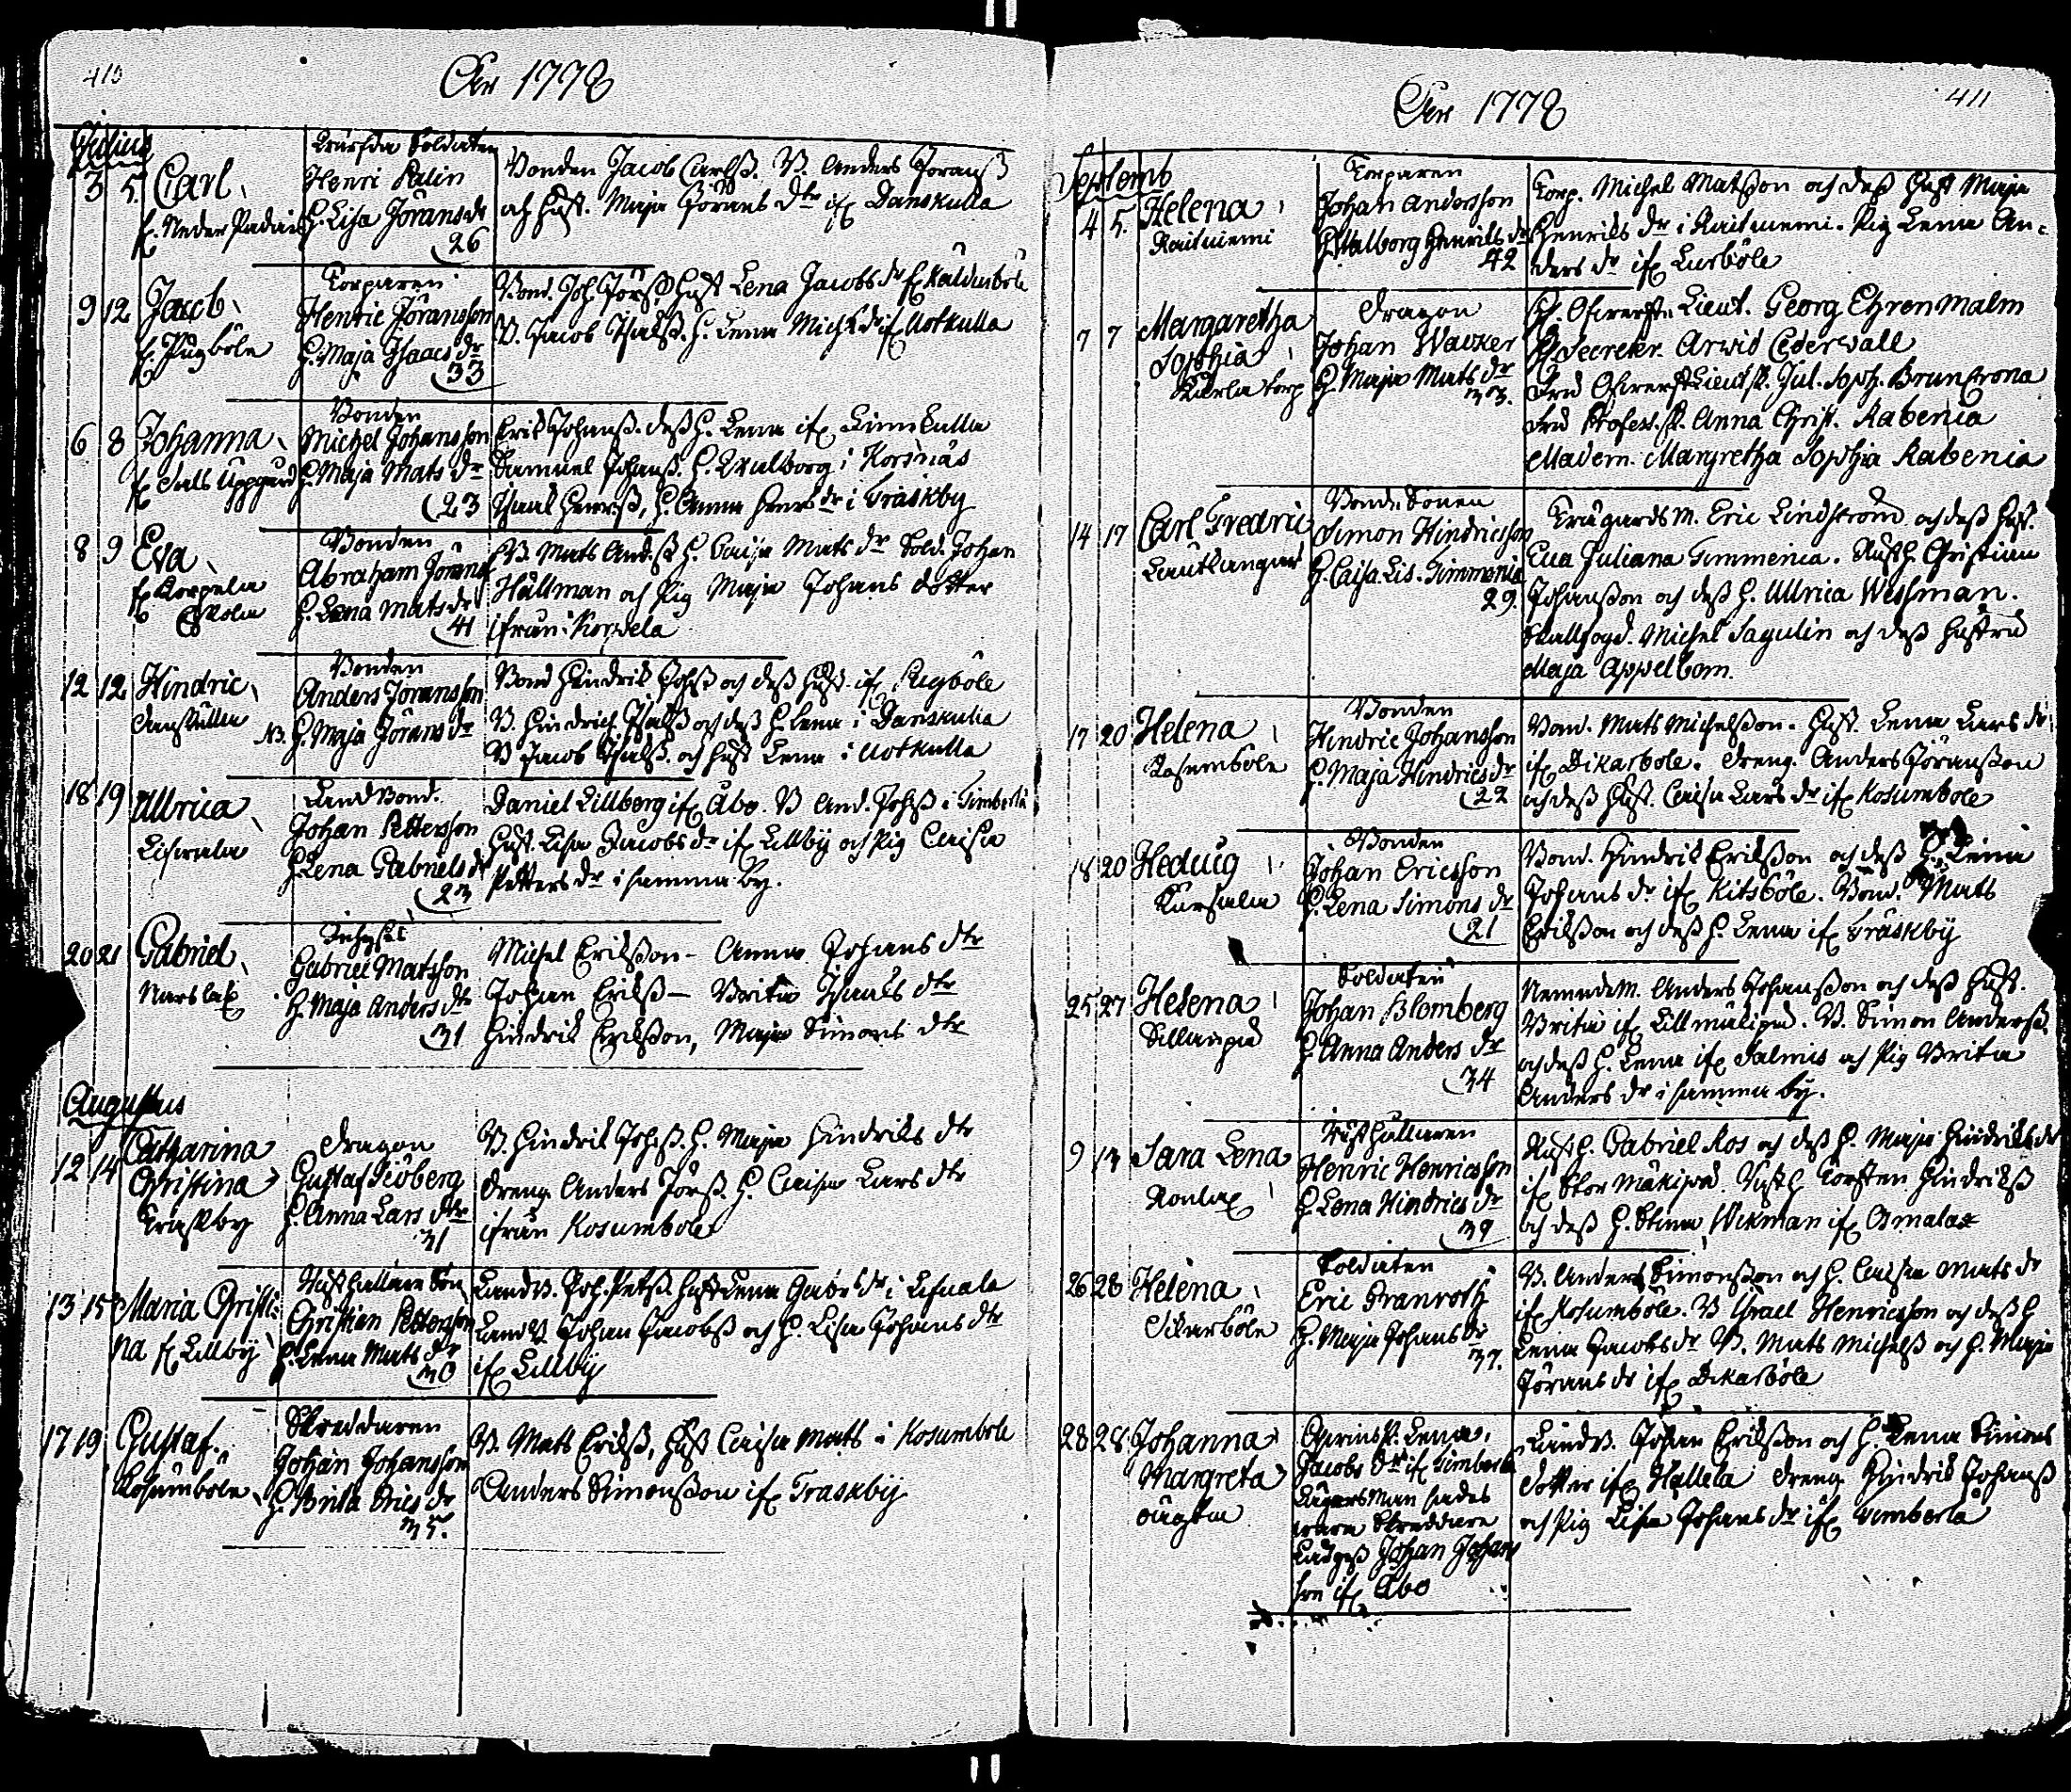 410
År 1778
Julius
3 5. Carl,
f. Neder Padais
Soldaten
Henri Palin
H. Lisa Jörans dr
26
Bonden Jacob Carlß. B. Anders Joranß
och hust. Maja Jörans dtr if. Danskulla
9 12 Jacob
f. Pugböle
Torparen
Henric Joransson
H. Maja Isaacs dr
33
Bond. Joh. Jörß. Hust Lena Jacobs dr f. Kaldurböle
B. Jacob Isaksß. H. Lena Mich. dr if. Uotkulla
6 8 Johanna
Bonden
Michel Johansson
H. Maja Mats dr
23
Erik Johanß. deß H. Lena if. Linnkulla
Samuel Johanß. H. Walborg i Korsnäs
Isaak Henrß, H. Anna Henrs dr i Träskby
8 9 Eva
f. Korpela
Bonden
Abraham Jöranß
H. Lena Mats dr
41
B. Mats And.ß H. Caisa Mats dr Sold. Johan
Hällman och Pig Maja Johans dotter
ifrån Korpela
12 12 Hindric
Danskulla
Bonden
Anders Joransson
NB. H. Maja Jörans dr
Bond Hindrik Johß och deß Hust. if. Rugböle
B. Hindrich Isakß och deß H Lena i Danskulla
B Jacob Isakß. och Hust Lena i Uotkulla
18 19 Ullrica
Landbond.
Johan Pettersson
H. Lena Gabriels dr
23
Daniel Lillberg if. Åbo. B And. Johß i Fimberla
Hust. Lisa Jacobs dr if. Lillby och Pig Caisa
Petters dr i samma by.
20 21 Gabriel
Narslax
Inhyses
Gabriel Matsson
H. Maja Anders dtr
31
Michel Erikßon - Anna Johans dtr
Johan Erikß - Brita Isaaks dtr
Hindrik Erikßon, Maja Simons dtr
Augustus
12 14 Catharina
Christina
Träskby
Dragon
Gustaf Siöberg
H. Anna Lars dtr
31
B. Hindrik Johß. H. Maja Hindriks dtr
Dreng Anders Jorß H. Caisa Lars dtr
ifrån Kosumbole
13 15 Maria Christi-
na f. Lillby
Rusthållare Son
Christian Pettersson
H. Lena Mats dr
30
Landb. Joh. Petß. Hust Lena Gabr. dr i
LandB Johan Jacobß och H. Lisa Johans dtr
if. Lillby
17 19 Gustaf.
Kosumböle
Skreddaren
Johan Johansson
H. Brita Erics dr
35.
B. Mats Erikß, Hust Caisa Mats i Kosumbole
Anders Simonßon if. Traskby
411
År 1778
Septemb
4 5. Helena
Raitniemi
Torparen
Johan Andersson
H Walborg Henriks dr
42
Torp. Michel Matsson och deß Hust Maja
Henriks dr i Raitniemi. Pig Lena An-
ders dr if. Lurböle
7 7 Margaretha
Sophia
Kärla torp
Dragon
Johan Wacker
H. Maja Mats dr
33.
H. Öfverste Lieut. Georg Ehrenmalm
H. Secreter. Arwid Cederwall
Fru Öfverst Lieutsk. Jul. Soph. Bruncrona
Fru Profess.sk. Anna Christ. Rabenia
Madem. Margretha Sophia Rabenia
14 17 Carl Fredric
Lautkangar
Bonde Sonen
Simon Hindricsson
H. Caisa Lis. Timmenia
29.
M. Eric Lindström och deß Hust.
Eva Juliana Timmenia. Rusth. Christian
Johanßon och deß H. Ullrica Wessman.
Michel Sagulin och deß Hustru
Maja Appelbom.
17 20 Helena
Kosumböle
Bonden
Hindric Johansson
H. Maja Hindrics dr
22
Bond. Mats Michelßon. Hust. Lena Lars dr
if. Dikarbole. Dreng. Anders Jöranßon
och deß Hust. Caisa Lars dr if. Kosumbole
18 20 Hedvig
Kärsala
Bonden
Johan Ericsson
H. Lena Simons dr
21
Bond. Hindrik Erikßon och deß H. Lena
Johans dr if. Kitsböle. Bond. Mats
Erikßon och deß H. Lena if. Träskby
25 27 Helena
Sillanpä
Soldaten
Johan Blomberg
H Anna Anders dr
34
NemndeM. Anders Johanßon och deß Hust.
Brita if. Lillmälipä. B. Simon Andersß
och deß H. Lena if. Salmis och Pig Brita
Anders dr i samma by.
9 13 Sara Lena
Ronlax
Rusthållaren
Henric Henricsson
H Lena Hindrics dr
39
Rusth. Gabriel Ros och deß H. Maja Hindriks dr
if. Stor Mäkipä Rusth Torsten Hindrikß
och deß H. Stina Wikman if. Osmalax
26 28 Helena
Dikarböle
Soldaten
Eric Granroth
H. Maja Johans dr
37.
B. Anders Simonsson och H. Caisa Mats dr
if. Kosumböle. B Israel Henricsson och deß H
Lena Jacobs dr B. Mats Michelß och H. Maja
Jörans dr if. Dikarböle
28 28 Johanna
Margreta
oägta
Qvinsp. Lena
Jacobs dr if. Fimberla
Skreddare
Johan Johans
son if. Åbo
Landb. Johan Erikßon och H. Lena Simons
dotter if. Hallela Dreng Hindrik Johanß
och Pig Lisa Johans dr if. Vemberla